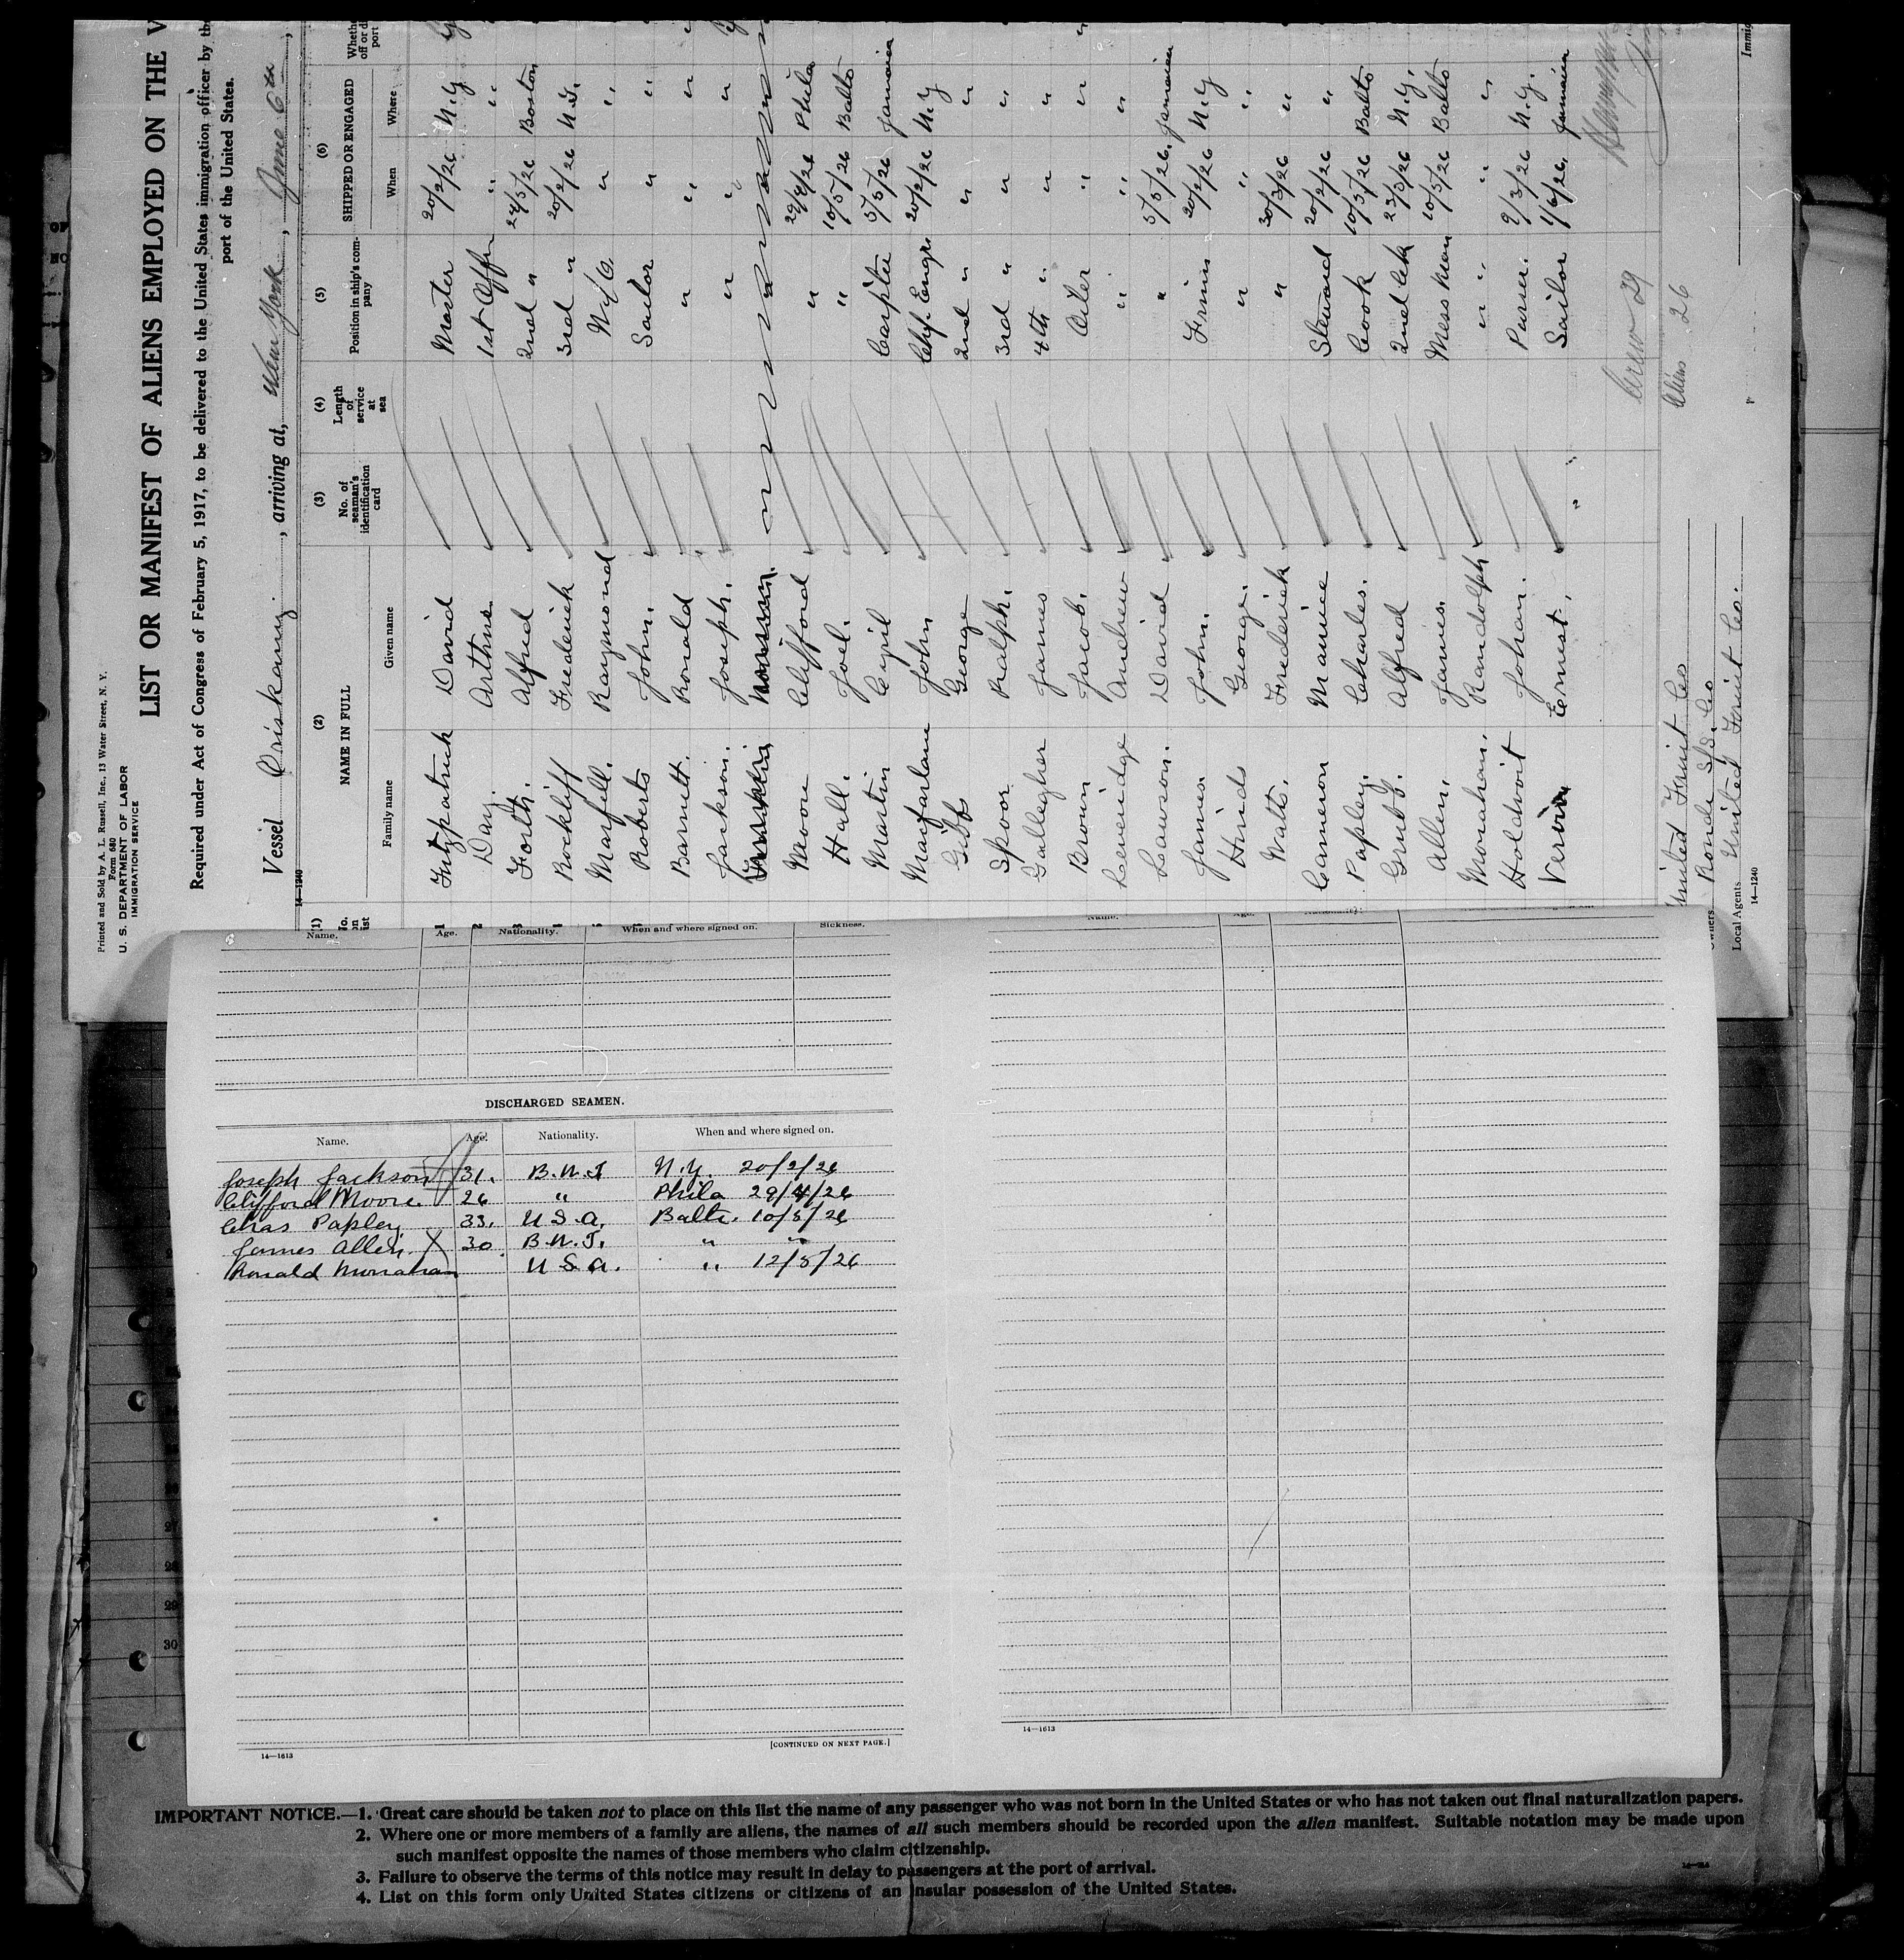 Printed and Sold by A. L. Russell, Inc., 13 Water Street, N. Y.
Form 680
U. S. DEPARTMENT OF LABOR
IMMIGRATION SERVICE
LIST OR MANIFEST OF ALIENS EMPLOYED ON THE V
Required under Act of Congress of February 5, 1917, to be delivered to the United States immigration officer by th
port of the United States.
Vessel Oriskany, arriving at, New York, June 6th,
14—1240
(1) (2) NAME IN FULL (3) No. of seaman's identification card (4) Length of service at sea (5) Position in ship's company (6) SHIPPED OR ENGAGED
Family name Given name When Where
Fitzpatrick David Master 20/2/26 N.Y
Day. Arthur 1st Offr " "
Forth. Alfred 2nd " 24/5/26 Boston
Rockliff Frederick 3rd " 20/2/26 N.Y.
Marfell. Raymond W/O. " "
Roberts John. Sailor " "
Barnett. Ronald " " "
Jackson. Joseph. " " "
Moore Clifford " 29/4/26 Phila
Hall. Joel. " 10/5/26 Balto
Martin Cyril Carpter 5/5/26 Jamaica
Macfarlane John Chf. Engr. 20/2/26 N.Y
Gibb George 2nd " " "
Spoor Ralph. 3rd " " "
Gallagher James 4th " " "
Brown Jacob. Oiler " "
Leveridge Andrew " " "
Lawson. David " 5/5/26. Jamaica
James John. Firem 20/2/26 N.Y
Hinds George. " " "
Watts. Frederick " 30/3/26 "
Cameron Maurice Steward 20/2/26 "
Papley. Charles. Cook 10/5/26 Balto
Grubb. Alfred 2nd Ck 23/3/26 N.Y.
Allen. James. Mess Man 10/5/26 Balto
Monahan. Randolph " " " "
Holdvoit Johan. Purser. 9/3/26 N.Y.
Vervin Ernest. Sailor 1/6/26. Jamaica
Crew 29
Aliens 26
United Fruit Co
Owners Ronde S/S. Co
Local Agents United Fruit Co.
14—1240
Immig
Name. Age. Nationality. When and where signed on. Sickness.
DISCHARGED SEAMEN.
Name. Age. Nationality. When and where signed on.
Joseph Jackson 31. B.W.I N.Y 20/2/26
Clifford Moore 26 " Phila 29/4/26
Chas Papley. 33. U S.A. Balto. 10/5/26
James Allen. X 30. B.W.I. " "
Ronald Monahan U S A. " 12/5/26
[CONTINUED ON NEXT PAGE.]
14—1613
14—1613
27
28
29
30
IMPORTANT NOTICE.—1. Great care should be taken not to place on this list the name of any passenger who was not born in the United States or who has not taken out final naturalization papers.
2. Where one or more members of a family are aliens, the names of all such members should be recorded upon the alien manifest. Suitable notation may be made upon
such manifest opposite the names of those members who claim citizenship.
3. Failure to observe the terms of this notice may result in delay to passengers at the port of arrival.
4. List on this form only United States citizens or citizens of an insular possession of the United States.